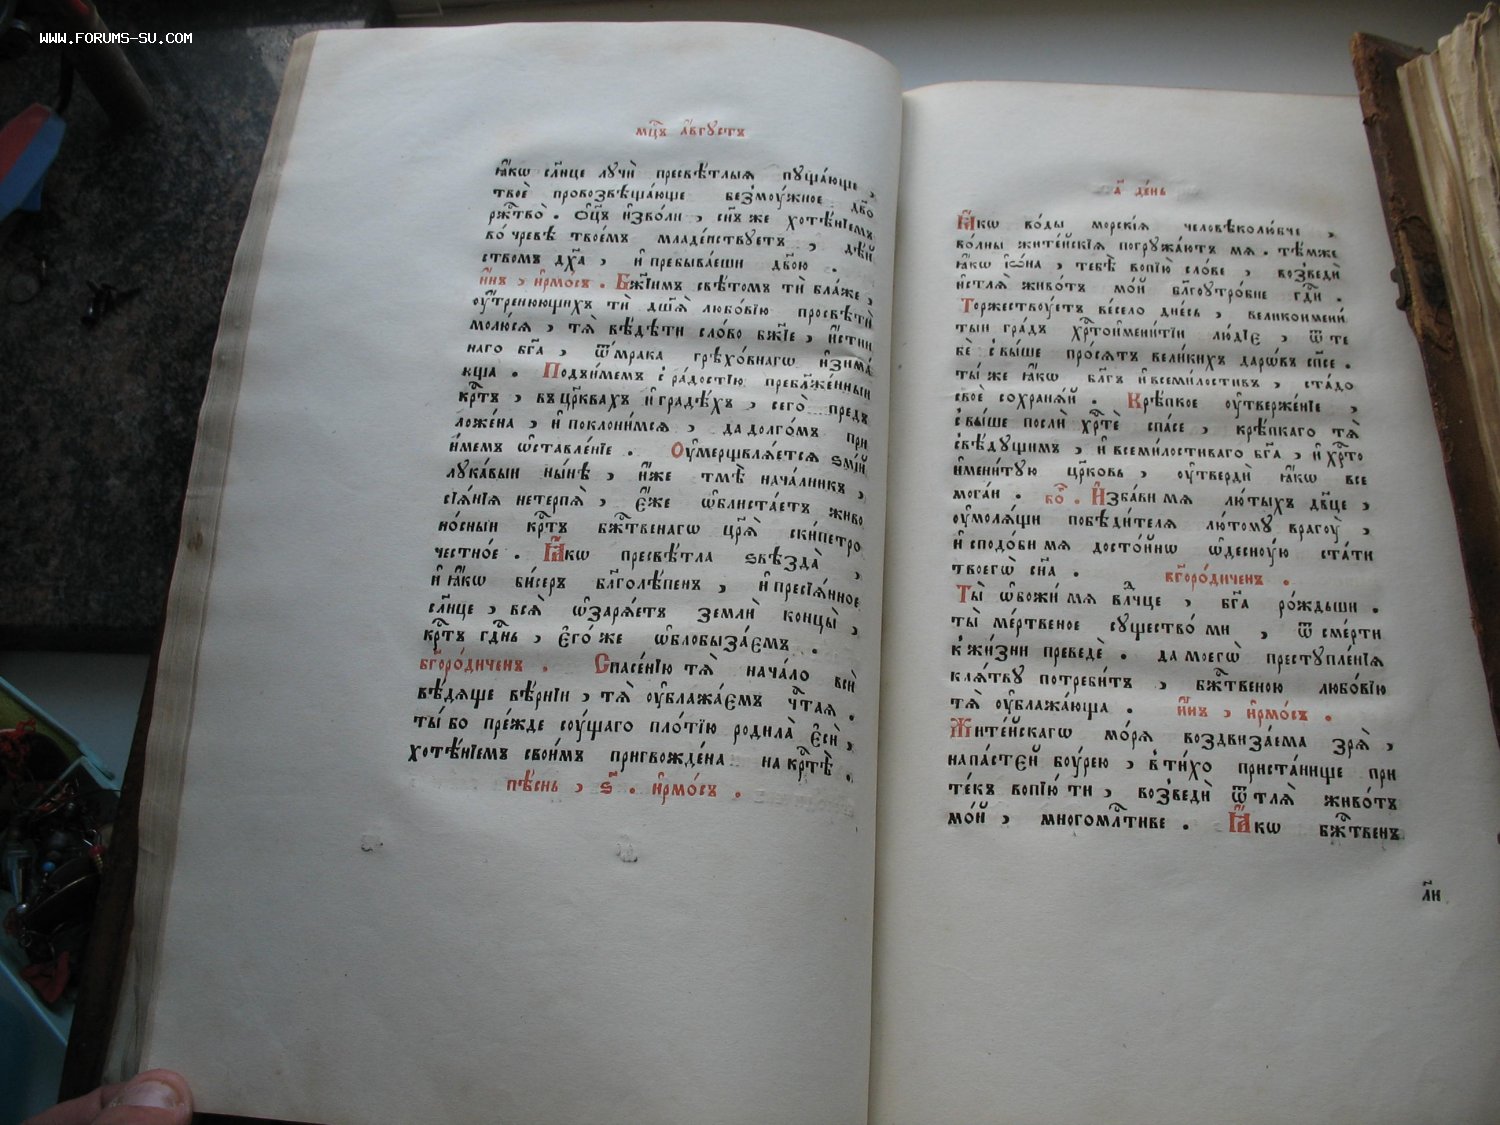 WWW.FORUMS-SU.COM
мцⷭ҇ъ а҆́вгꙋстъ
ꙗ҆́кѡ сл҃нце лꙋчѝ пресвѣ́тлыѧ пꙋща́юще ,
твоѐ провозвѣща́юще безмоу́жное дв҃о
ржⷭ҇тво̀ . ѻ҆ц҃ъ и҆зво́ли , сн҃ъ же хотѣ́нїемъ
во́ чревѣ твое́мъ младе́нствꙋетъ , дѣ́й
ствомъ дх҃а , и҆ пребыва́еши дв҃ою .
и҆́нъ , і҆рмо́съ . Бж҃їимъ свѣ́томъ тѝ бла́же ,
оу҆́тренюющихъ тѝ дш҃а̀ любо́вїю просвѣтѝ
молю́сѧ , тѧ̀ вѣ́дѣти сло́во бж҃їе , и҆́стин
наго бг҃а , ѿ мрака грѣхо́внагѡ и҆зима́
юща . Подъи́мемъ с ра́достїю пребл҃же́нный
крⷭ҇тъ , въ цр҃квахъ и҆ градѣ́хъ , сего̀ предъ
ложе́на , и҆ поклони́мсѧ , да долго́мъ при
и́мемъ ѡ҆ставле́нїе . Оу҆мерщвлѧ́етсѧ ѕмі́й
лꙋка́вый ны́нѣ , и҆́же тмѣ̀ нача́лникъ ,
сїѧ́нїѧ нетерпѧ̀ , є҆́же ѡ҆блиста́етъ живо
но́сный крⷭ҇тъ бжⷭ҇твенагѡ цр҃ѧ̀ ски́петро
честно́е . Ꙗ҆́кѡ пресвѣ́тла ѕвѣзда̀ ,
и҆ ꙗ҆́кѡ би́серъ бл҃голѣ́пенъ , и҆ пресїѧ́нное
сл҃нце , всѧ̀ ѡ҆зарѧ́етъ землѝ концы̀ ,
крⷭ҇тъ гдⷭ҇нь , є҆го́ же ѡ҆блобыза́емъ .
бг҃оро́диченъ . Спасе́нїю тѧ̀ нача́ло всѝ
вѣ́дѧще вѣ́рнїи , тѧ̀ оу҆блажа́емъ чⷭ҇таѧ .
ты́ бо пре́жде соу́щаго пло́тїю родила̀ є҆сѝ ,
хотѣ́нїемъ свои́мъ пригвожде́на на крⷭ҇тѣ̀ .
пѣ́снь , ѕ҃ . і҆рмо́съ .
а҃ де́нь
Ꙗ҆́кѡ во́ды морскі́ѧ человѣколю́бче ,
во́лны жите́йскїѧ погрꙋжа́ютъ мѧ . тѣ́мже
ꙗ҆́кѡ і҆ѡ́на , тебѣ̀ вопїю̀ сло́ве , возведѝ
и҆стлѧ̀ живо́тъ мо́й бл҃гоꙋтро́бне гдⷭ҇и .
Торжествоу́етъ ве́село дне́сь , великоимени́
тый гра́дъ хрⷭ҇тоимени́тїи лю́дїе , ѿ те
бѐ свы́ше про́сѧтъ вели́кихъ даро́въ сп҃се .
ты́ же ꙗ҆́кѡ бл҃гъ и҆ всеми́лостивъ , ста́до
своѐ сохранѧ́й . Крѣ́пкое оу҆твержє́нїе ,
свы́ше послѝ хрⷭ҇тѐ спа́се , крѣ́пкаго тѧ̀
свѣ́дꙋщимъ , и҆ всеми́лостиваго бг҃а , и҆ хрⷭ҇то
имени́тꙋю цр҃ковь , оу҆твердѝ ꙗ҆́кѡ все
мога́й . бо҃ . И҆зба́ви мѧ лю́тыхъ дв҃це ,
оу҆молѧ́ющи побѣди́телѧ лю́томꙋ врагоу̀ ,
и҆ сподо́би мѧ досто́йнѡ ѡ҆десноу́ю ста́ти
твоегѡ̀ сн҃а . бг҃оро́диченъ .
Ты̀ ѡ҆божи́ мѧ влⷣчце , бг҃а ро́ждьши .
ты̀ ме́ртвеное сꙋщество́ ми , ѿ сме́рти
к жи́зни преведѐ . да моегѡ̀ престꙋпле́нїѧ
клѧ́твꙋ потреби́тъ , бжⷭ҇твеною любо́вїю
тѧ̀ оу҆блажа́юща . и҆́нъ , і҆рмо́съ .
Жите́йскагѡ мо́рѧ воздвиза́ема зрѧ̀ ,
напа́стей боу́рею , в ти́хо приста́нище при
те́къ вопїю́ ти , возведѝ ѿ тлѧ̀ живо́тъ
мо́й , многомлⷭ҇тиве . Ꙗ҆́кѡ бжⷭ҇твенъ
л҃и